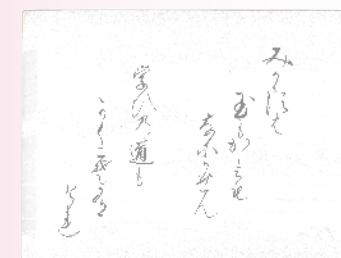 みかゝすは
玉もかゝみも
なにかせん
学ひの道も
かくこそ
けれ